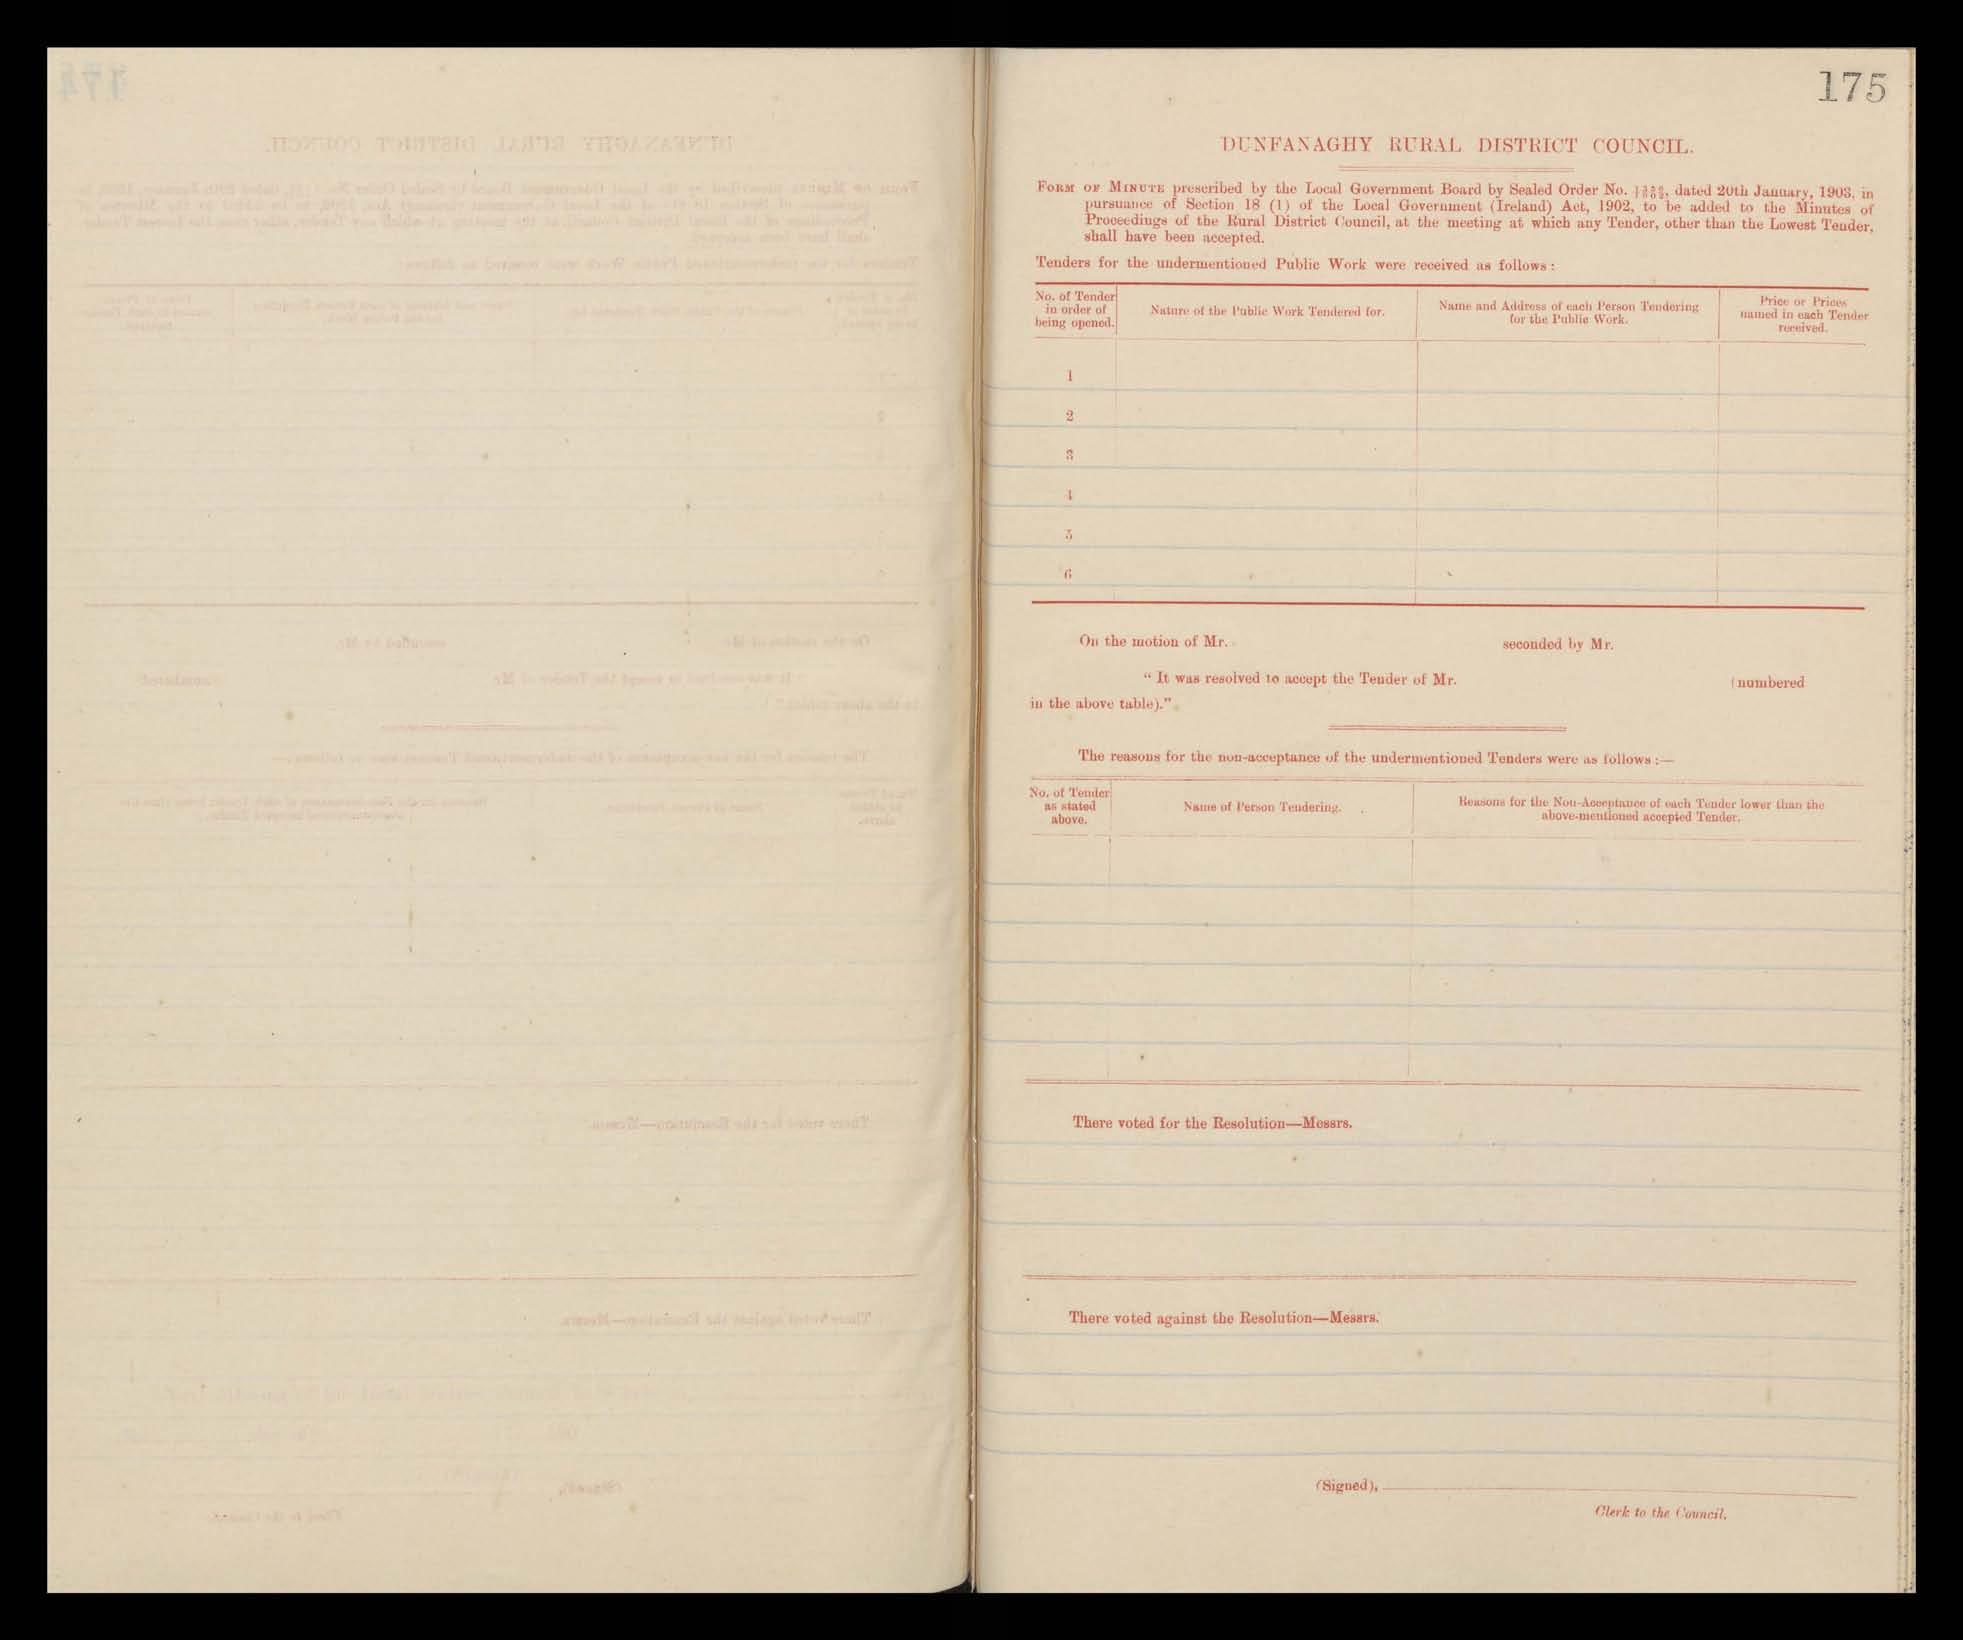 175
DUNFANAGHY RURAL DISTRICT COUNCIL.
FORM OF MINUTE prescribed by the Local Government Board by Sealed Order No. dated 20th January, 1903, in
pursuance of Section 18 (1) of the Local Government (Ireland) Act, 1902, to be added to the Minutes of
Proceedings of the Rural District Council, at the meeting at which any Tender, other than the Lowest Tender,
shall have been accepted.
Tenders for the undermentioned Public Work were received as follows:
No. of Tender
in order of
being opened.
Nature of the Public Work Tendered for.
Name and Address of each Person Tendering
for the Public Work.
Price or Prices
named in each Tender
received.
1
2
3
4
5
6
On the motion of Mr. seconded by Mr.
"It was resolved to accept the Tender of Mr. (numbered
in the above table)."
The reasons for the non-acceptance of the undermentioned Tenders were as follows:—
No. of Tender
as stated
above.
Name of Person Tendering.
Reasons for the Non-Acceptance of each Tender lower than the
above-mentioned accepted Tender.
There voted for the Resolution—Messrs.
There voted against the Resolution—Messrs.
(Signed),
Clerk to the Council.